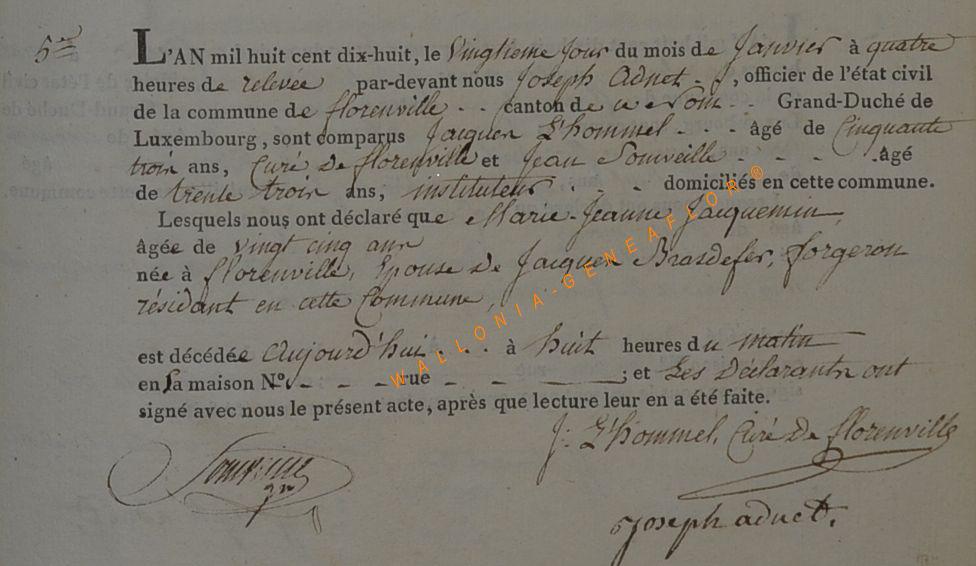 5me
L'AN mil huit cent dix-huit, le Vingtieme Jour du mois de Janvier à quatre
heures de relevée par-devant nous Joseph Adnet, officier de l'état civil
de la commune de florenville - - canton de Grand-Duché de
Luxembourg, sont comparus Jacques L'hommel - - - âgé de Cinquante
trois ans, Curé De florenville et Jean - - - âgé
de trente trois ans, instituteur - - - domiciliés en cette commune.
Lesquels nous ont déclaré que Marie-Jeanne Jacquemin,
âgée de vingt cinq ans
née à florenville, Epouse de Jacques Brasdefer, forgeron
résidant en cette Commune,
est décédée Aujourd'hui - - - à huit heures du matin
en sa maison N.° - - - rue - - - ; et Les Déclarants ont
signé avec nous le présent acte, après que lecture leur en a été faite.
J: L'hommel, Curé De florenville
Joseph adnet.
WALLONIA-GENEAFLOR®